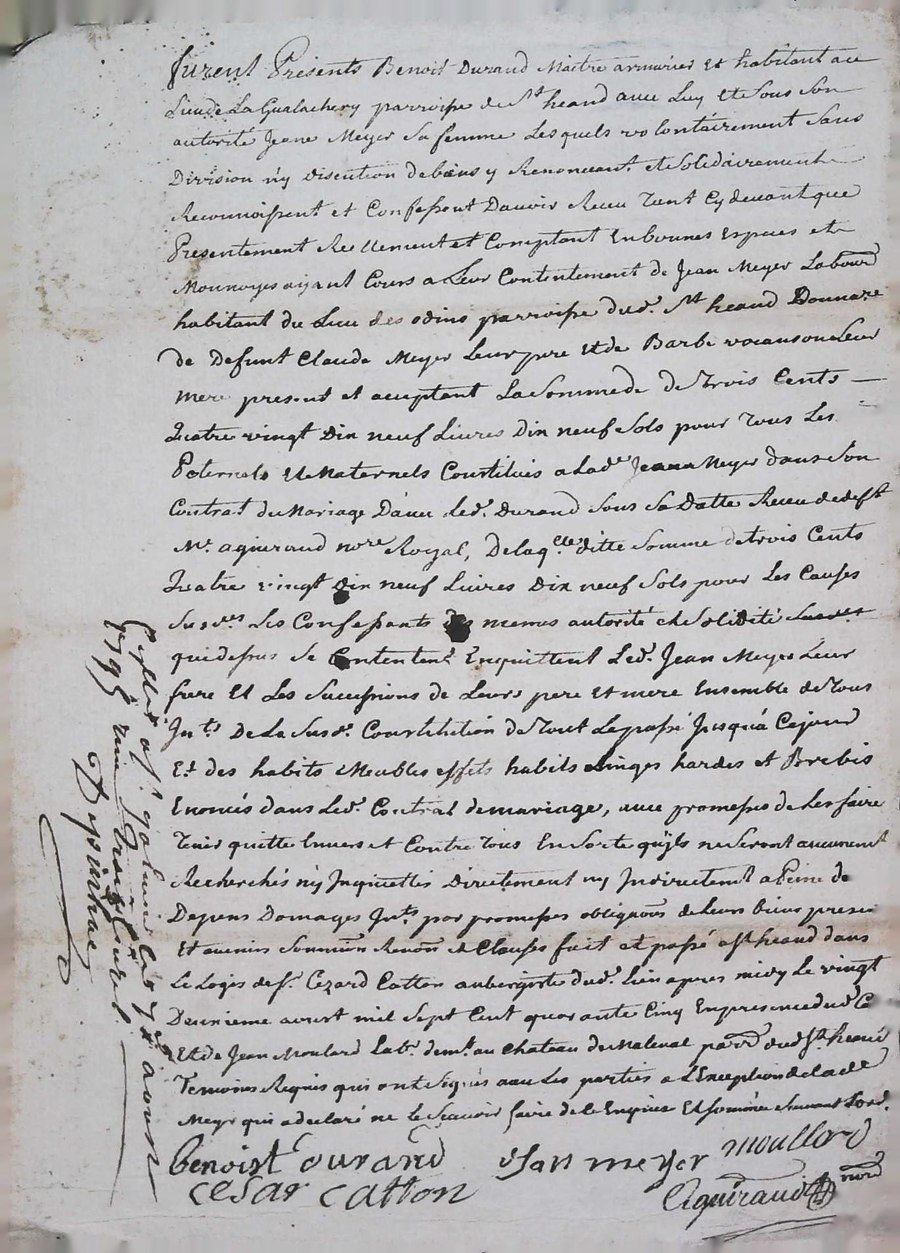 furent Présents Benoit Durand Maitre armurier et habitant au
Lieu de La Gualachery parroisse de St. heand avec Luy et Sous Son
autorité Jeane Meyer Sa femme Lesquels volontairement Sans
Division n'y discution de biens y Renonceant et Solidairement
Reconnoissent et Confessent D'avoir Receu Tant Cy devant que
Presentement Reellement et Comptant En bonnes Especes et
Monnoyes ayant Cours a Leur Contentement de Jean Meyer Labourr
habitant du Lieu des odins parroisse dud. St heand Donnare
de Defunt Claude Meyer Leur pere Et de Barbe vocansone Leur
Mere present et aceptant La Somme de de Trois Cents
Quatre vingt Dix neuf Livres Dix neuf Sols pour Tous Les
Paternels Et Maternels Constitués a Lade Jeane Meyer dans Son
Contrat du Mariage D'avec Led. Durand Sous Sa Datte Receu de deft
Me. aguiraud nore Royal, De laqelle ditte Somme de trois Cents
Quatre vingt Dix neuf Livres Dix neuf Sols pour Les Causes
Susdes Les Confessants des memes autorité et Solidité
que dessus Se Contentent Enquittent Led. Jean Meyer Leur
frere Et Les Successions de Leurs pere Et mere Ensemble de Tous
Intts De La Susd. Constitution de Tout Le passé Jusqu'a Cejourd
Et des habits Meubles effets habits Linges hardes et Brebis
Enoncés dans Led. Contrat de mariage, avec promesses de Les faire
Tenir quitte Envers et Contre Tous En Sorte qu'ils ne Seront aucunemt
Recherchés n'y Inquiettés Directement ny Indirectemt a Peine de
Depens Domages Intts par promesses obligaons de Leurs biens presens
Et avenir Soumissions Renons et Clauses fait et passé a St heand dans
Le Logis de Sr. Cezard Catton aubergiste dud. Lieu apres midy Le vingt
Deuxieme aoust mil Sept Cent quarante Cinq En presence dud Ca
Et de Jean Moulard Labr. demt au Chateau de Maleval parr dud St heand
Temoins Requis qui ont Signés avec Les parties a L'Exception de lade
Meyer qui a declaré ne le Scavoir faire de le Enquise Et Sommée Suivant Lord.
benoist durand Jan meyer moullard
cesar catton Aguiraud nore
Conllé a St. galmier ce 7 aoust
1745 reçu
Depinhac